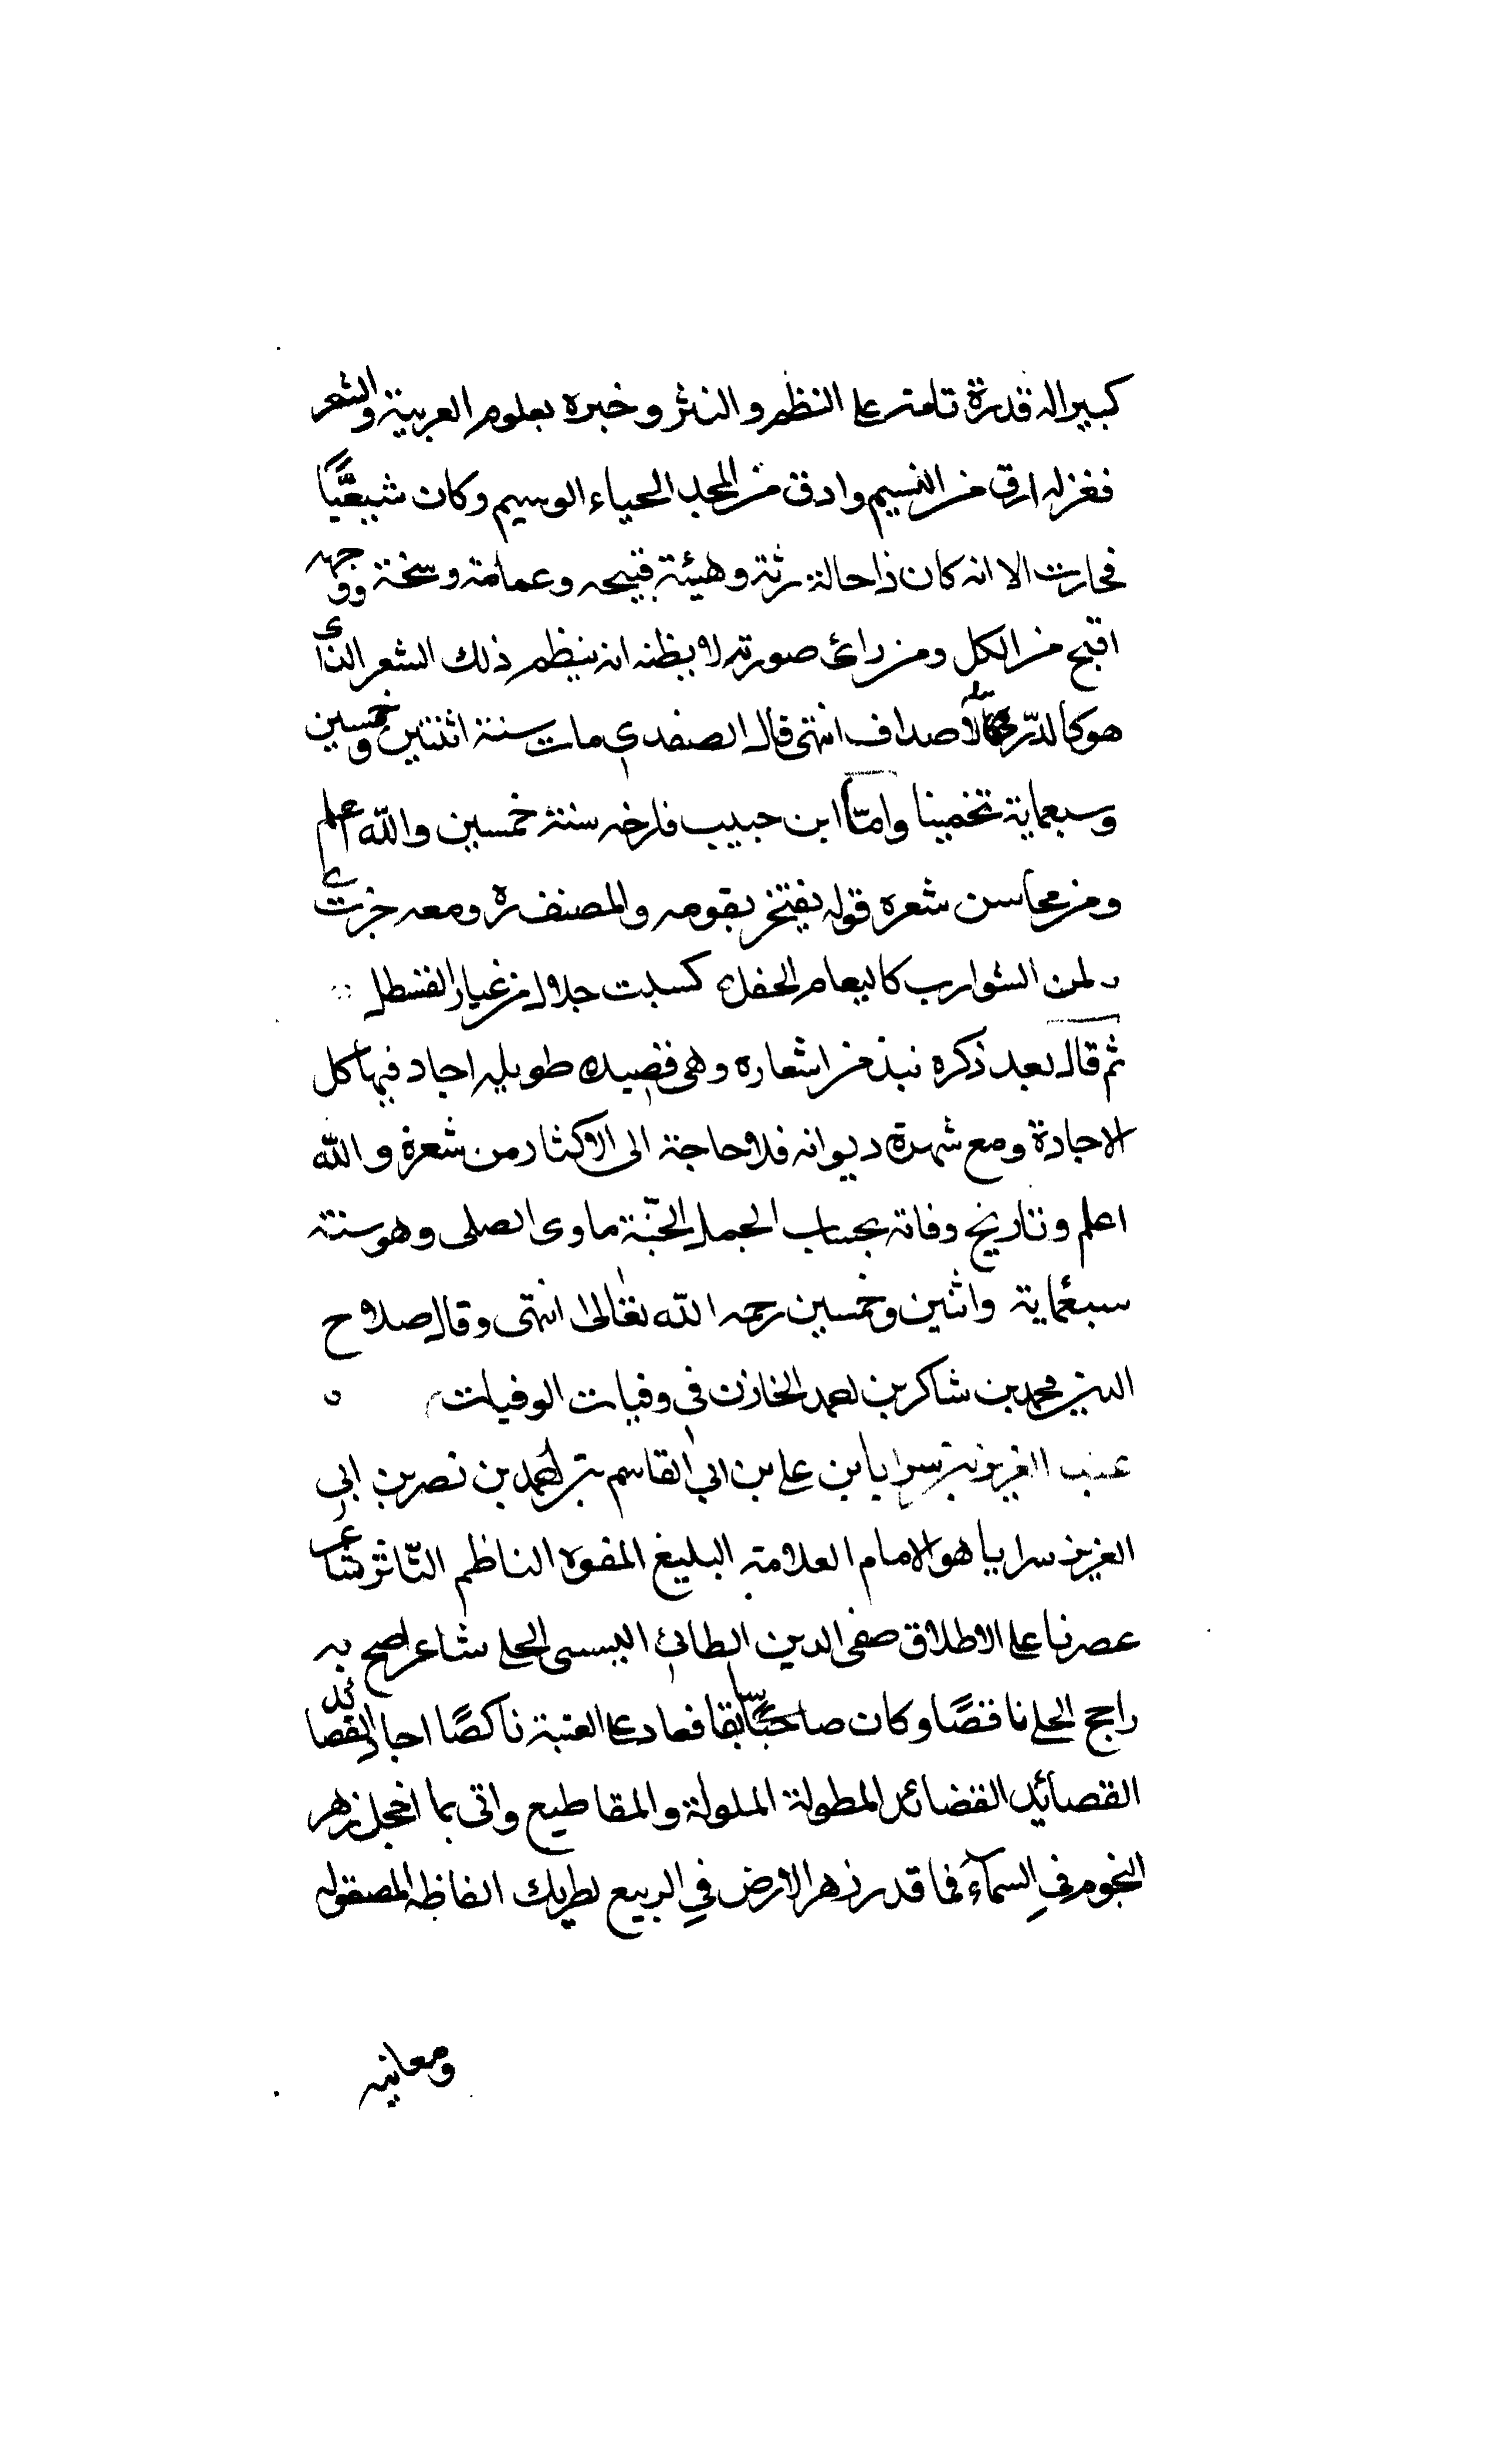 كبيرا له قدرة تامة على النظم والنثر وخبره بعلوم العربية والشعر
فغزله ارق من النسيم وادق من المحيا الوسيم وكان شيعيًّا
فحارت الا انه كان ذا حالة رثة وهيئة قبيحه وعمامة وسخة ووجهه
اقبح من الكل ومن رائ صورته لا يظنه انه ينظم ذلك الشعر الذى
هو كالدّر في الاصداف انتهى قال الصفدي مات سنة اثنتين وخمسين
وسبعماية تخمينا وامّا ابن حبيب فارخه سنة خمسين والله اعلم
ومن محاسن شعره قوله يفتخر بقومه
لمن الشوارب كالنعام الجفل كسبت جلالا من غبار القسطل
ثم قال بعد ذكره نبذ من اشعاره وهى قصيده طويله اجاد فيها كل
الاجادة ومع شهرة ديوانه فلا حاجة الى الاكثار من شعره والله
اعلم وتاريخ وفاته بحساب الجمل الجنّة ماوى الصلى وهو سنة
سبعماية واثنين وخمسين رحمه الله تعالى انتهى وقال صلاح
الدين محمد بن شاكر بن احمد الخازن فى وفيات الوفيات
عبد العزيز بن سرايا بن على بن ابي القاسم بن احمد بن نصر بن ابى
العزيز سرايا هو الامام العلامة البليغ المفوه الناظم النّاثر شاعر
عصرنا على الاطلاق صفى الدين الطائى السبسى الحلى شاعر اصبح به
راجح الحلى ناقصًا وكان صاحبًا سابقا فعاد على العتبة ناكصًا اجاد القصائد
القصائد القضائد المطولة الملولة والمقاطيع واتى بما اخجل زهر
النجوم في السمآء فما قدر زهر الارض في الربيع يطربك الفاظه المصقوله
ومعانيه